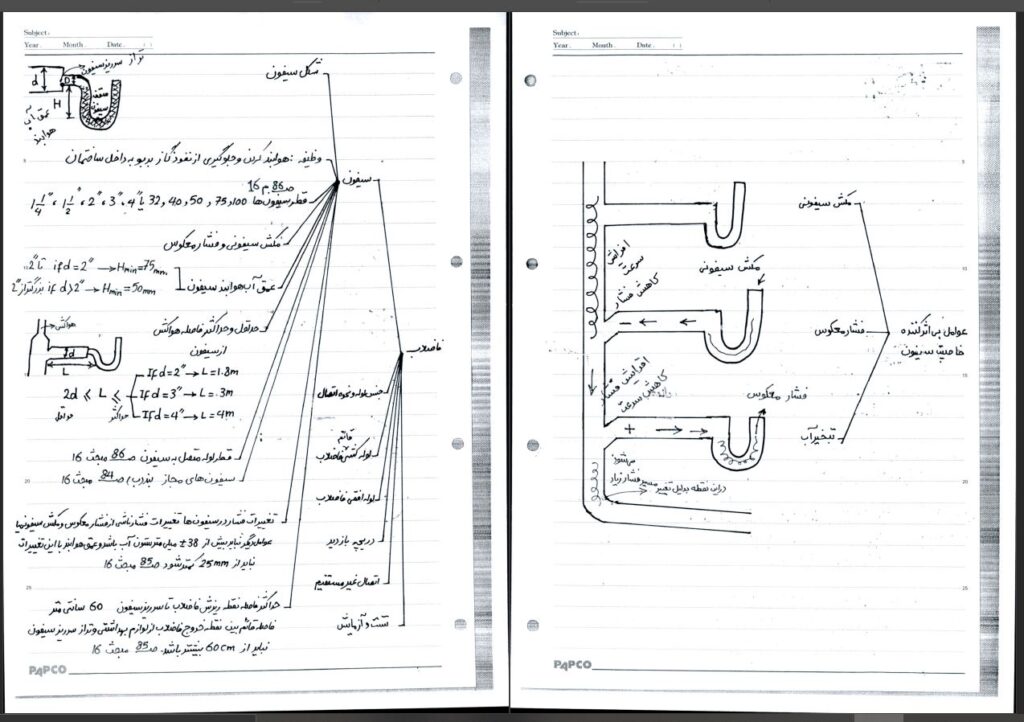 Subject:
Year. Month. Date. ( )
تراز سرریز سیفون
d
D
H
سقف سیفون
عمق آب هوابند
شکل سیفون
وظیفه: هوابند کردن و جلوگیری از نفوذ گاز بدبو به داخل ساختمان
سیفون
صـ 86 م 16
قطر سیفون‌ها 100 و 75 و 50 و 40 و 32 یا 4" و 3" و 2" و 1 1/2" و 1 1/4"
مکش سیفونی و فشار معکوس
عمق آب هوابند سیفون
تا 2" if d = 2" → Hmin = 75mm
بزرگتر از 2" if d > 2" → Hmin = 50mm
هواکش
d
L
حداقل و حداکثر فاصله هواکش
از سیفون
If d = 2" → L = 1.8m
2d ≤ L ≤ If d = 3" → L = 3m
If d = 4" → L = 4m
حداقل
حداکثر
قطر لوله متصل به سیفون صـ 86 مبحث 16
سیفون‌های مجاز بند ب / صـ 84 مبحث 16
تغییرات فشار در سیفون‌ها تغییرات فشار ناشی از فشار معکوس و مکش سیفونی یا
عوامل دیگر نباید بیش از 38 ± میلی متر ستون آب باشد و عمق هوابند با این تغییرات
نباید از 25mm کمتر شود صـ 85 مبحث 16
حداکثر فاصله نقطه ریزش فاضلاب تا سرریز سیفون 60 سانتی متر
فاصله قائم بین نقطه خروج فاضلاب از لوازم بهداشتی و تراز سرریز سیفون
نباید از 60cm بیشتر باشد. صـ 85 مبحث 16
فاضلاب
جنس لوله و نحوه اتصال
لوله کشی قائم فاضلاب
لوله افقی فاضلاب
دریچه بازدید
اتصال غیر مستقیم
تست و آزمایش
PAPCO
Subject:
Year. Month. Date. ( )
عوامل بی اثر کننده
خاصیت سیفون
مکش سیفونی
فشار معکوس
تبخیر آب
افزایش سرعت
کاهش فشار
مکش سیفونی
−
افزایش فشار
کاهش سرعت
فشار معکوس
+
در این نقطه بدلیل تغییر مسیر فشار زیاد
میشود
PAPCO